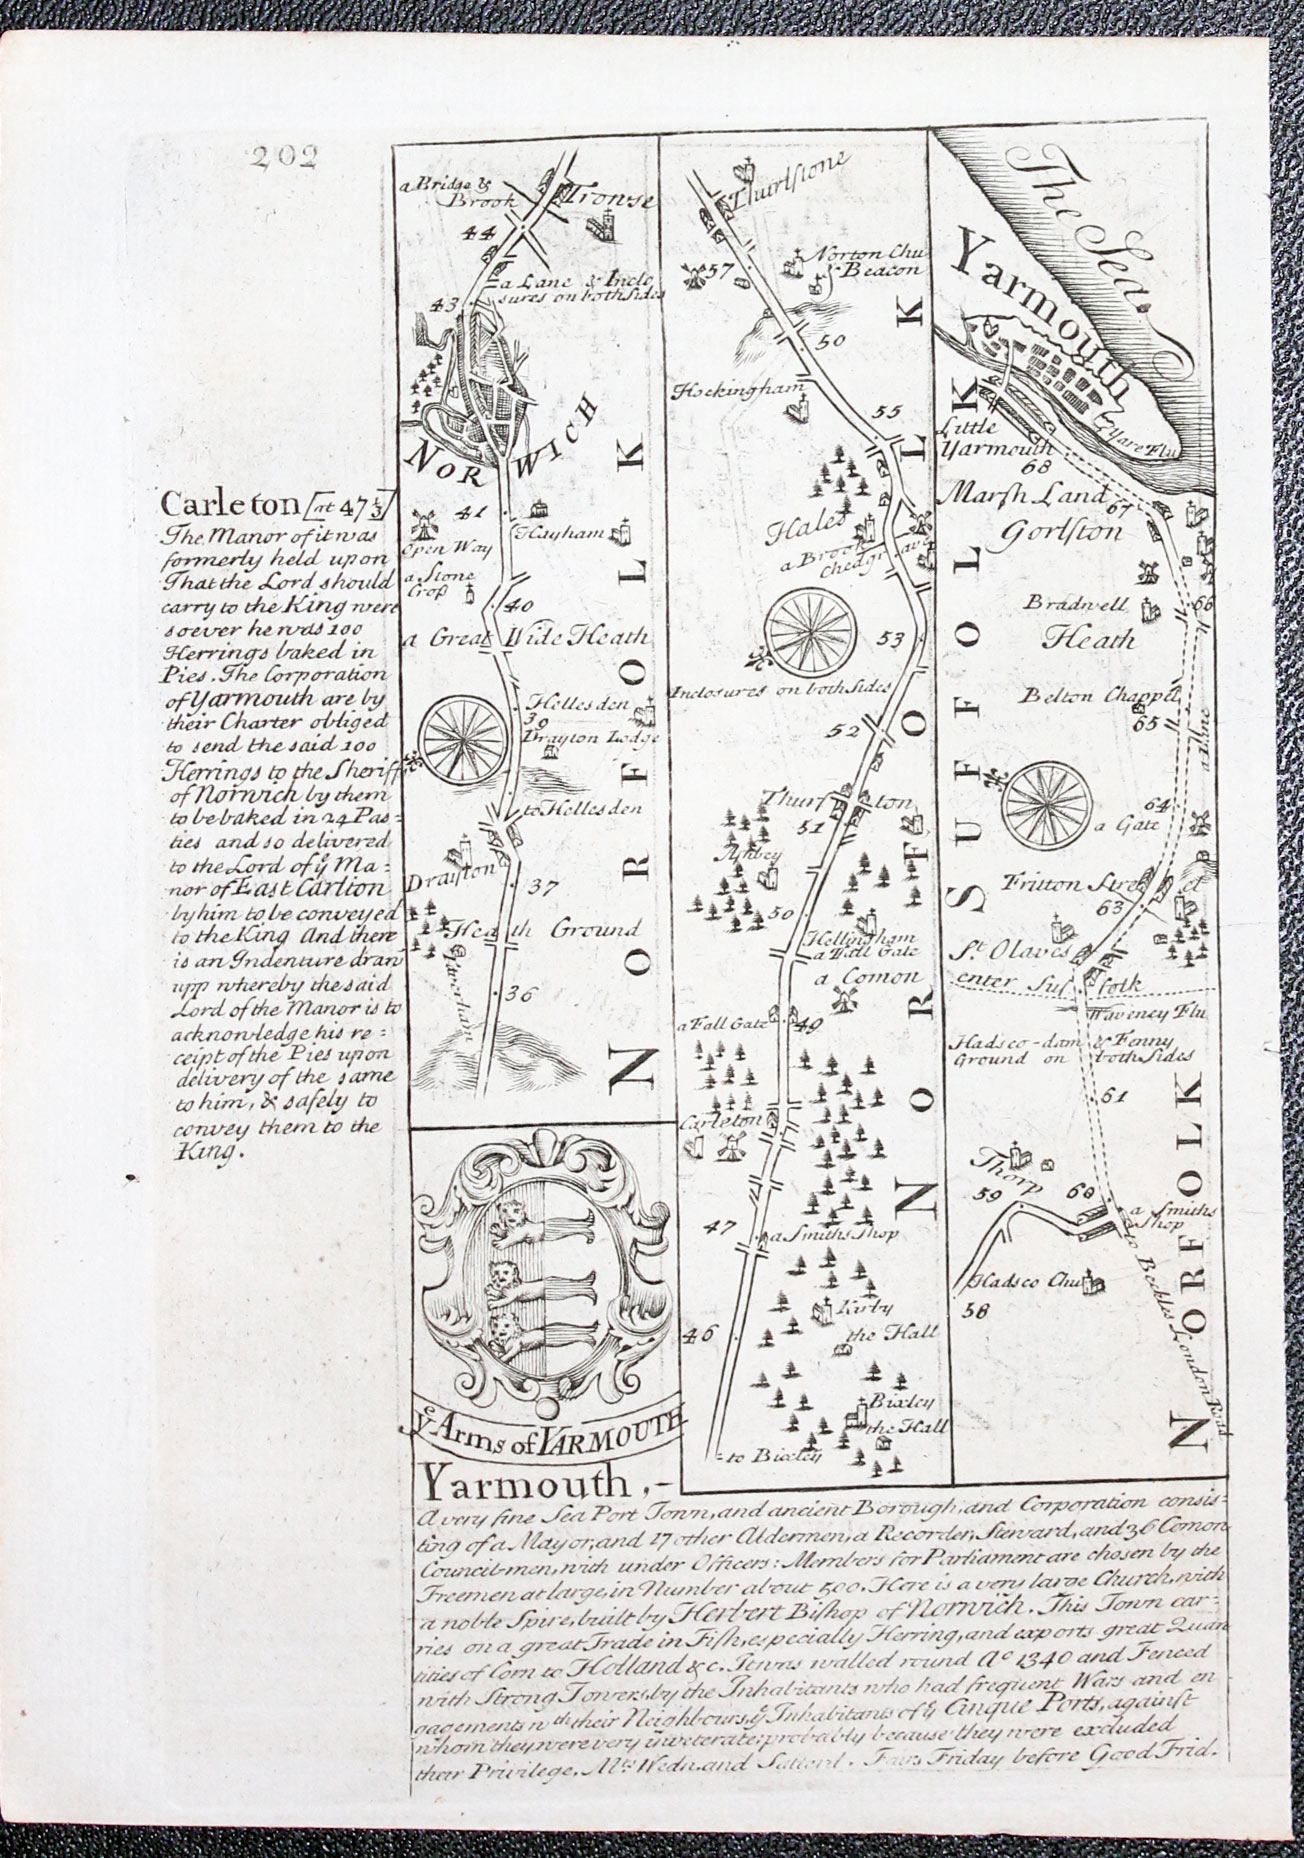 202
Carleton [at 47⅓]
The Manor of it was
formerly held upon
That the Lord should
carry to the King were
soever he was 100
Herrings baked in
Pies. The Corporation
of Yarmouth are by
their Charter obliged
to send the said 100
Herrings to the Sheriff
of Norwich by them
to be baked in 24 Pas=
ties and so delivered
to the Lord of yͤ Ma=
nor of East Carlton
by him to be conveyed
to the King And there
is an Indenture drawn
upp whereby the said
Lord of the Manor is to
acknowledge his re=
ceipt of the Pies upon
delivery of the same
to him, & safely to
convey them to the
King.
a Bridge &
Brook
Trowse
44
a Lane & Inclo
sures on both Sides
43
NORWICH
41
Hayham
Open Way
a Stone
Cross
40
a Great Wide Heath
Hellesden
39
Drayton Lodge
to Hellesden
Drayton
37
Heath Ground
Taverham
36
NORFOLK
yͤ Arms of YARMOUTH
Thurlstone
57
Norton Chu
& Beacon
50
Hockingham
55
Hales
a Brook
Chedgrave
53
Inclosures on both Sides
52
Thurston
51
Ashby
50
Hellingham
a Fall Gate
a Comon
a Fall Gate
49
Carleton
47
a Smiths Shop
Kirby
the Hall
46
Bixley
the Hall
to Bixley
NORFOLK
The Sea
Yarmouth
Little
Yarmouth
Yare Flu
68
Marsh Land
67
Gorlston
Bradwell
66
Heath
Belton Chappel
65
a Lane
64
a Gate
Fritton Street
63
St. Olaves
enter Suffolk
Waveney Flu
Hadsco-dam & Fenny
Ground on both Sides
61
Thorp
59
60
a Smiths
Shop
to Beckles London Road
Hadsco Chu
58
SUFFOLK
NORFOLK
Yarmouth,-
A very fine Sea Port Town, and ancient Borough, and Corporation consis=
ting of a Mayor, and 17 other Aldermen, a Recorder, Steward, and 36 Comon
Councilmen, with under Officers: Members for Parliament are chosen by the
Freemen at large, in Number about 500. Here is a very large Church, with
a noble Spire, built by Herbert Bishop of Norwich. This Town car=
ries on a great Trade in Fish, especially Herring, and exports great Quan
tities of Corn to Holland &c. It was walled round Aͦ 1340 and Fenced
with Strong Towers, by the Inhabitants who had frequent Wars and en
gagements wᵗʰ their Neighbours, yͤ Inhabitants of yͤ Cinque Ports, against
whom they were very inveterate, probably because they were excluded
their Privilege. Mᵗˢ Wedn. and Saturd. Fairs Friday before Good Frid.